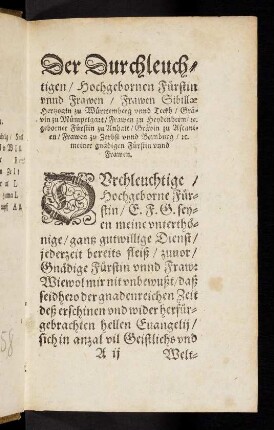 Der Durchleuch-
tigen / Hochgebornen Fürstin
vnnd Frawen / Frawen Sibillæ
Hertzogin zu Würtemberg vnnd Teckh / Grä-
vin zu Mümpelgart / Frawen zu Heydenheim / ꝛc.
geborner Fürstin zu Anhalt / Grävin zu Ascani-
en / Frawen zu Zerbst vnnd Bernburg / ꝛc.
meiner gnädigen Fürstin vnnd
Frawen.
DVrchleuchtige /
Hochgeborne Für-
stin / E. F. G. sey-
en meine vnterthö-
nige / gantz gutwillige Dienst /
jederzeit bereits fleiß / zuuor /
Gnädige Fürstin vnnd Fraw:
Wiewol mir nit vnbewußt / daß
seidhero der gnadenreichen Zeit
deß erschinen vnd wider herfür-
gebrachten hellen Euangelij /
sich in anzal vil Geistlichs vnd
A ij Welt-
58